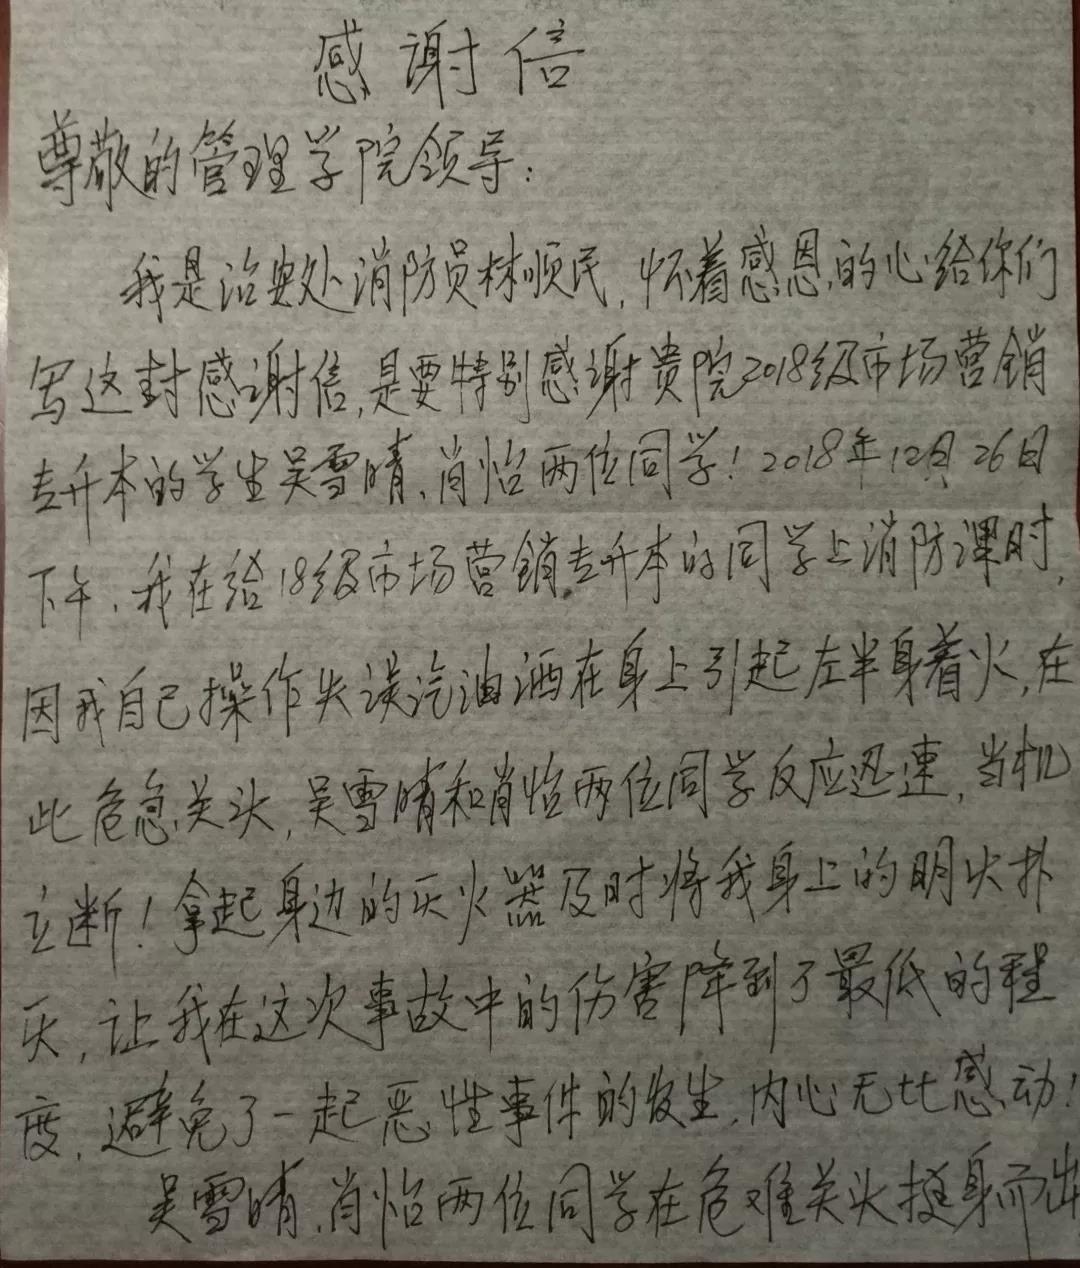 感谢信
尊敬的管理学院领导：
我是治安处消防员林顺民，怀着感恩的心给你们
写这封感谢信，是要特别感谢贵院2018级市场营销
专升本的学生吴雪晴、肖怡两位同学！2018年12月26日
下午，我在给18级市场营销专升本的同学上消防课时，
因我自己操作失误汽油洒在身上引起左半身着火，在
此危急关头，吴雪晴和肖怡两位同学反应迅速，当机
立断！拿起身边的灭火器及时将我身上的明火扑
灭，让我在这次事故中的伤害降到了最低的程
度，避免了一起恶性事件的发生，内心无比感动！
吴雪晴、肖怡两位同学在危难关头挺身而出